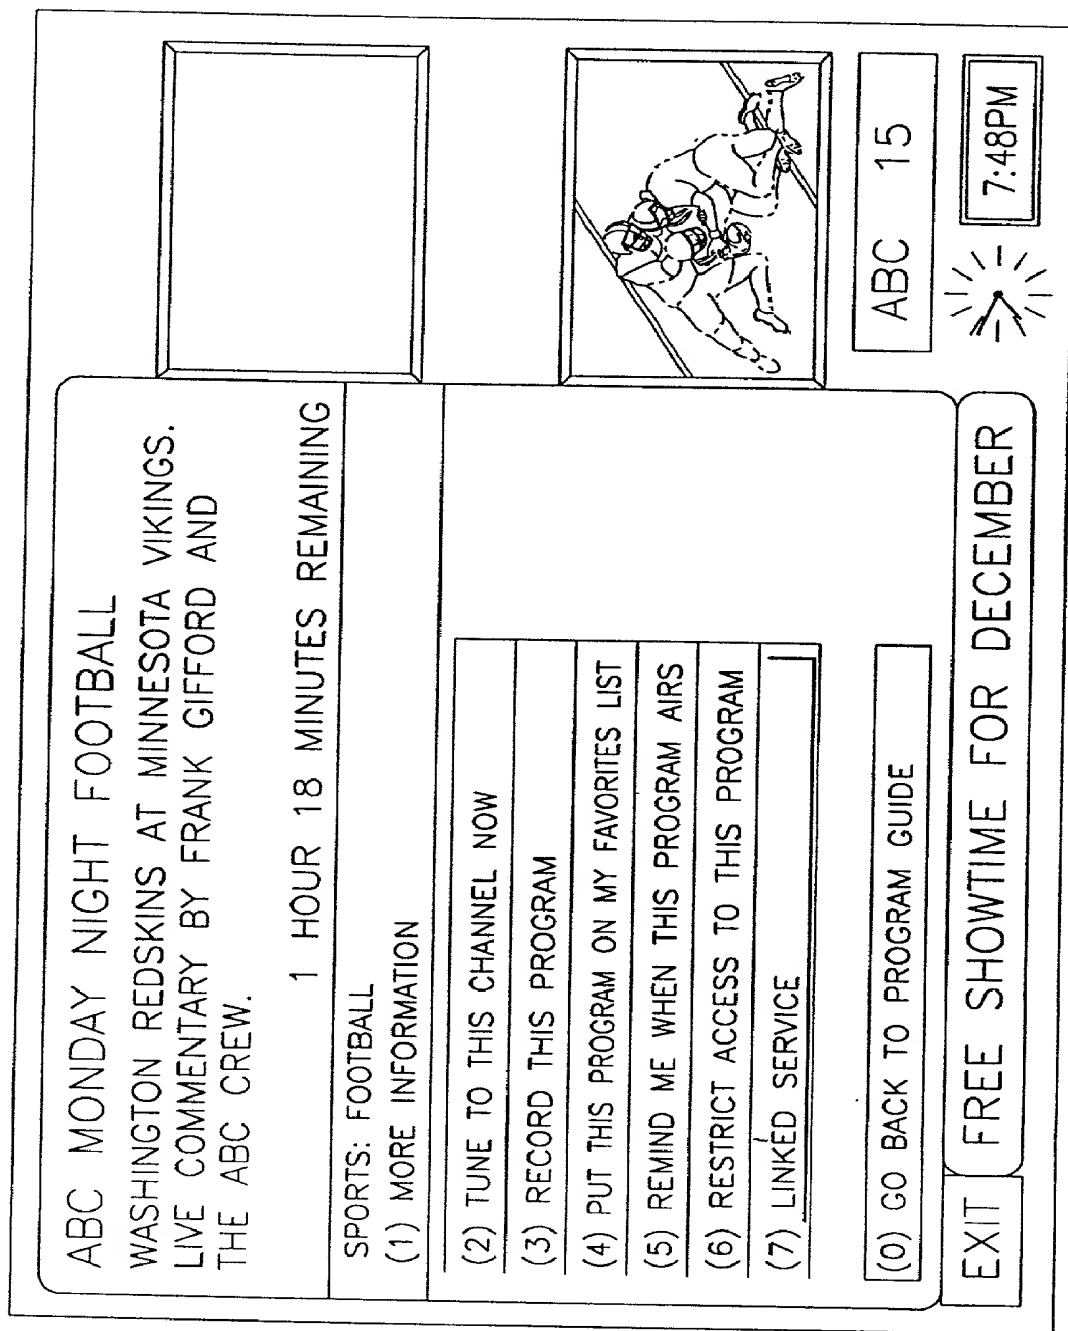 ABC MONDAY NIGHT FOOTBALL
WASHINGTON REDSKINS AT MINNESOTA VIKINGS.
LIVE COMMENTARY BY FRANK GIFFORD AND
THE ABC CREW.
1 HOUR 18 MINUTES REMAINING
SPORTS: FOOTBALL
(1) MORE INFORMATION
(2) TUNE TO THIS CHANNEL NOW
(3) RECORD THIS PROGRAM
(4) PUT THIS PROGRAM ON MY FAVORITES LIST
(5) REMIND ME WHEN THIS PROGRAM AIRS
(6) RESTRICT ACCESS TO THIS PROGRAM
(7) LINKED SERVICE
(0) GO BACK TO PROGRAM GUIDE
ABC 15
EXIT
FREE SHOWTIME FOR DECEMBER
7:48PM